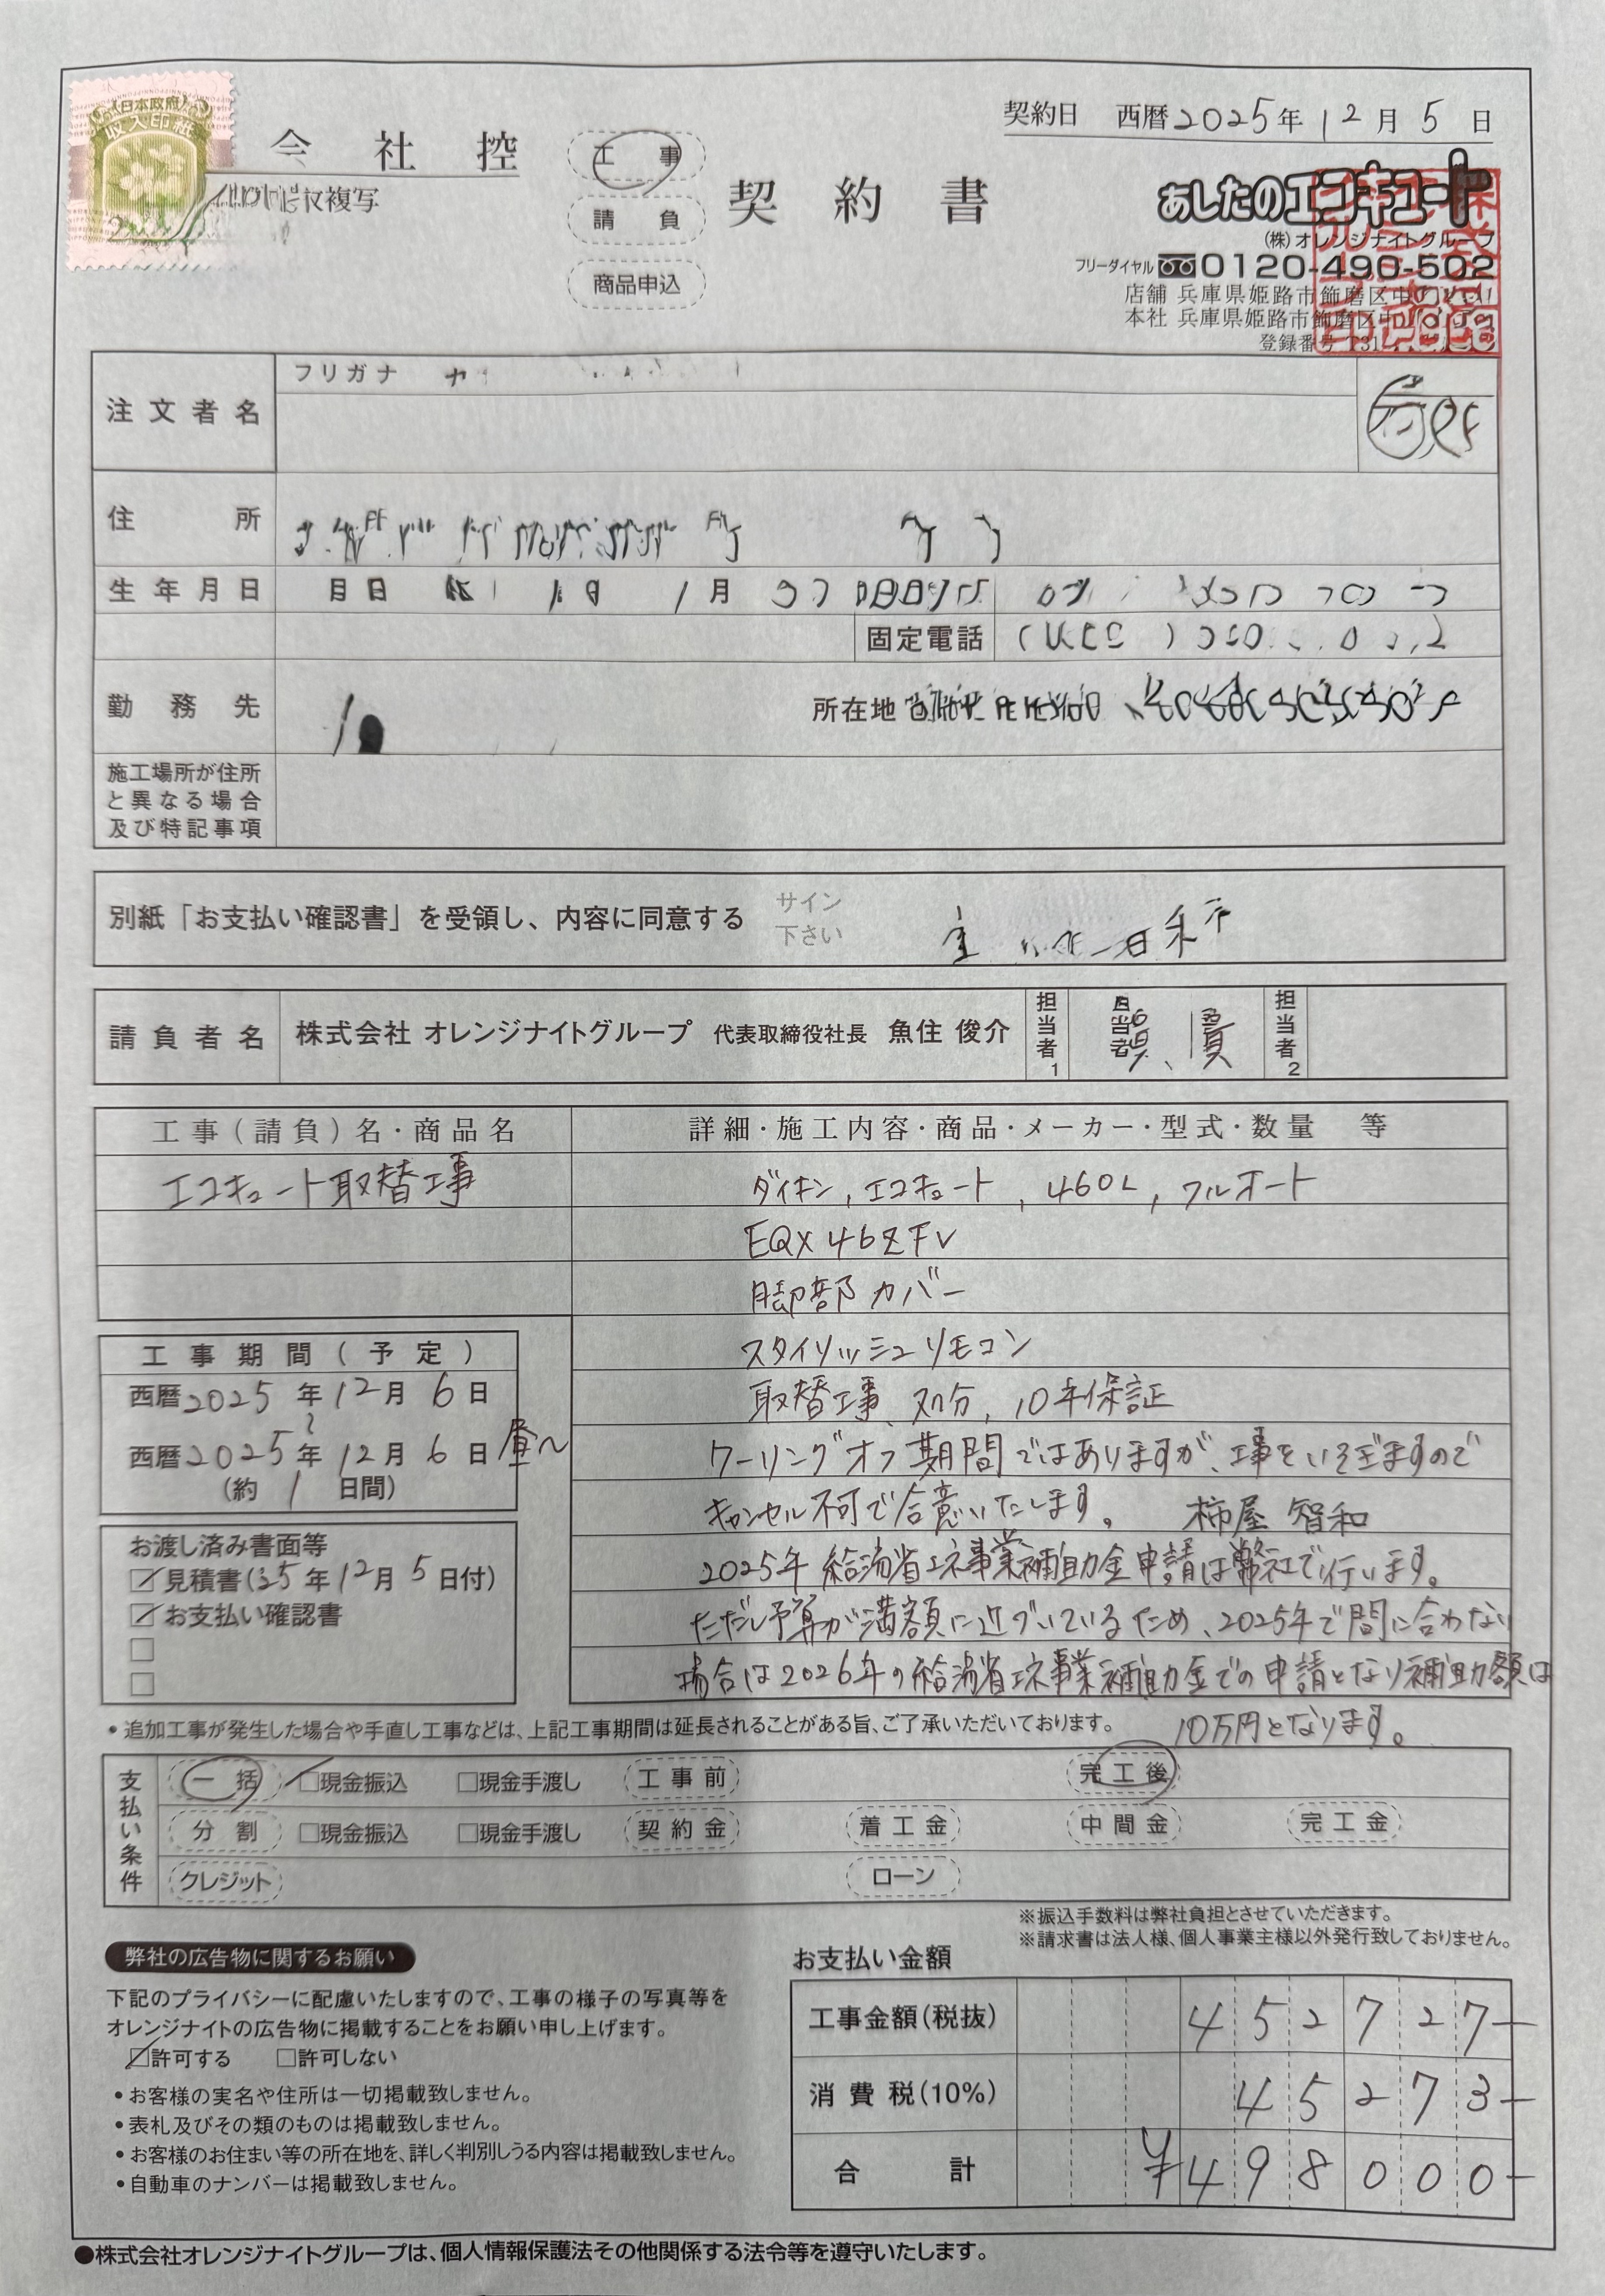 契約日 西暦2025年12月5日
日本政府
収入印紙
会社控
複写
工事
請負
商品申込
契約書
あしたのエコキュート
(株)オレンジナイトグループ
フリーダイヤル 0120-490-502
店舗 兵庫県姫路市飾磨区中
本社 兵庫県姫路市飾磨区中
登録番号
注文者名
フリガナ
住所
生年月日
固定電話
勤務先
所在地
施工場所が住所
と異なる場合
及び特記事項
別紙「お支払い確認書」を受領し、内容に同意する
サイン
下さい
請負者名 株式会社 オレンジナイトグループ 代表取締役社長 魚住 俊介 担当者1 担当者2
工事(請負)名・商品名 詳細・施工内容・商品・メーカー・型式・数量 等
エコキュート取替工事 ダイキン, エコキュート, 460L, フルオート
EQX46ZFV
脚部カバー
スタイリッシュリモコン
取替工事、処分, 10年保証
クーリングオフ期間ではありますが、工事をいそぎますので
キャンセル不可で合意いたします。 柿屋 智和
2025年 給湯省エネ事業補助金申請は弊社で行います。
ただし予算が満額に近づいているため、2025年で間に合わない
場合は2026年の給湯省エネ事業補助金での申請となり補助額は
10万円となります。
工事期間(予定)
西暦2025年12月6日
~
西暦2025年12月6日 昼~
(約 1 日間)
お渡し済み書面等
見積書('25年12月5日付)
お支払い確認書
・追加工事が発生した場合や手直し工事などは、上記工事期間は延長されることがある旨、ご了承いただいております。
支払い条件
一括 □現金振込 □現金手渡し 工事前 完工後
分割 □現金振込 □現金手渡し 契約金 着工金 中間金 完工金
クレジット ローン
※振込手数料は弊社負担とさせていただきます。
※請求書は法人様、個人事業主様以外発行致しておりません。
弊社の広告物に関するお願い
下記のプライバシーに配慮いたしますので、工事の様子の写真等を
オレンジナイトの広告物に掲載することをお願い申し上げます。
許可する □許可しない
・お客様の実名や住所は一切掲載致しません。
・表札及びその類のものは掲載致しません。
・お客様のお住まい等の所在地を、詳しく判別しうる内容は掲載致しません。
・自動車のナンバーは掲載致しません。
お支払い金額
工事金額(税抜) 452727-
消費税(10%) 45273-
合計 ¥498000-
●株式会社オレンジナイトグループは、個人情報保護法その他関係する法令等を遵守いたします。